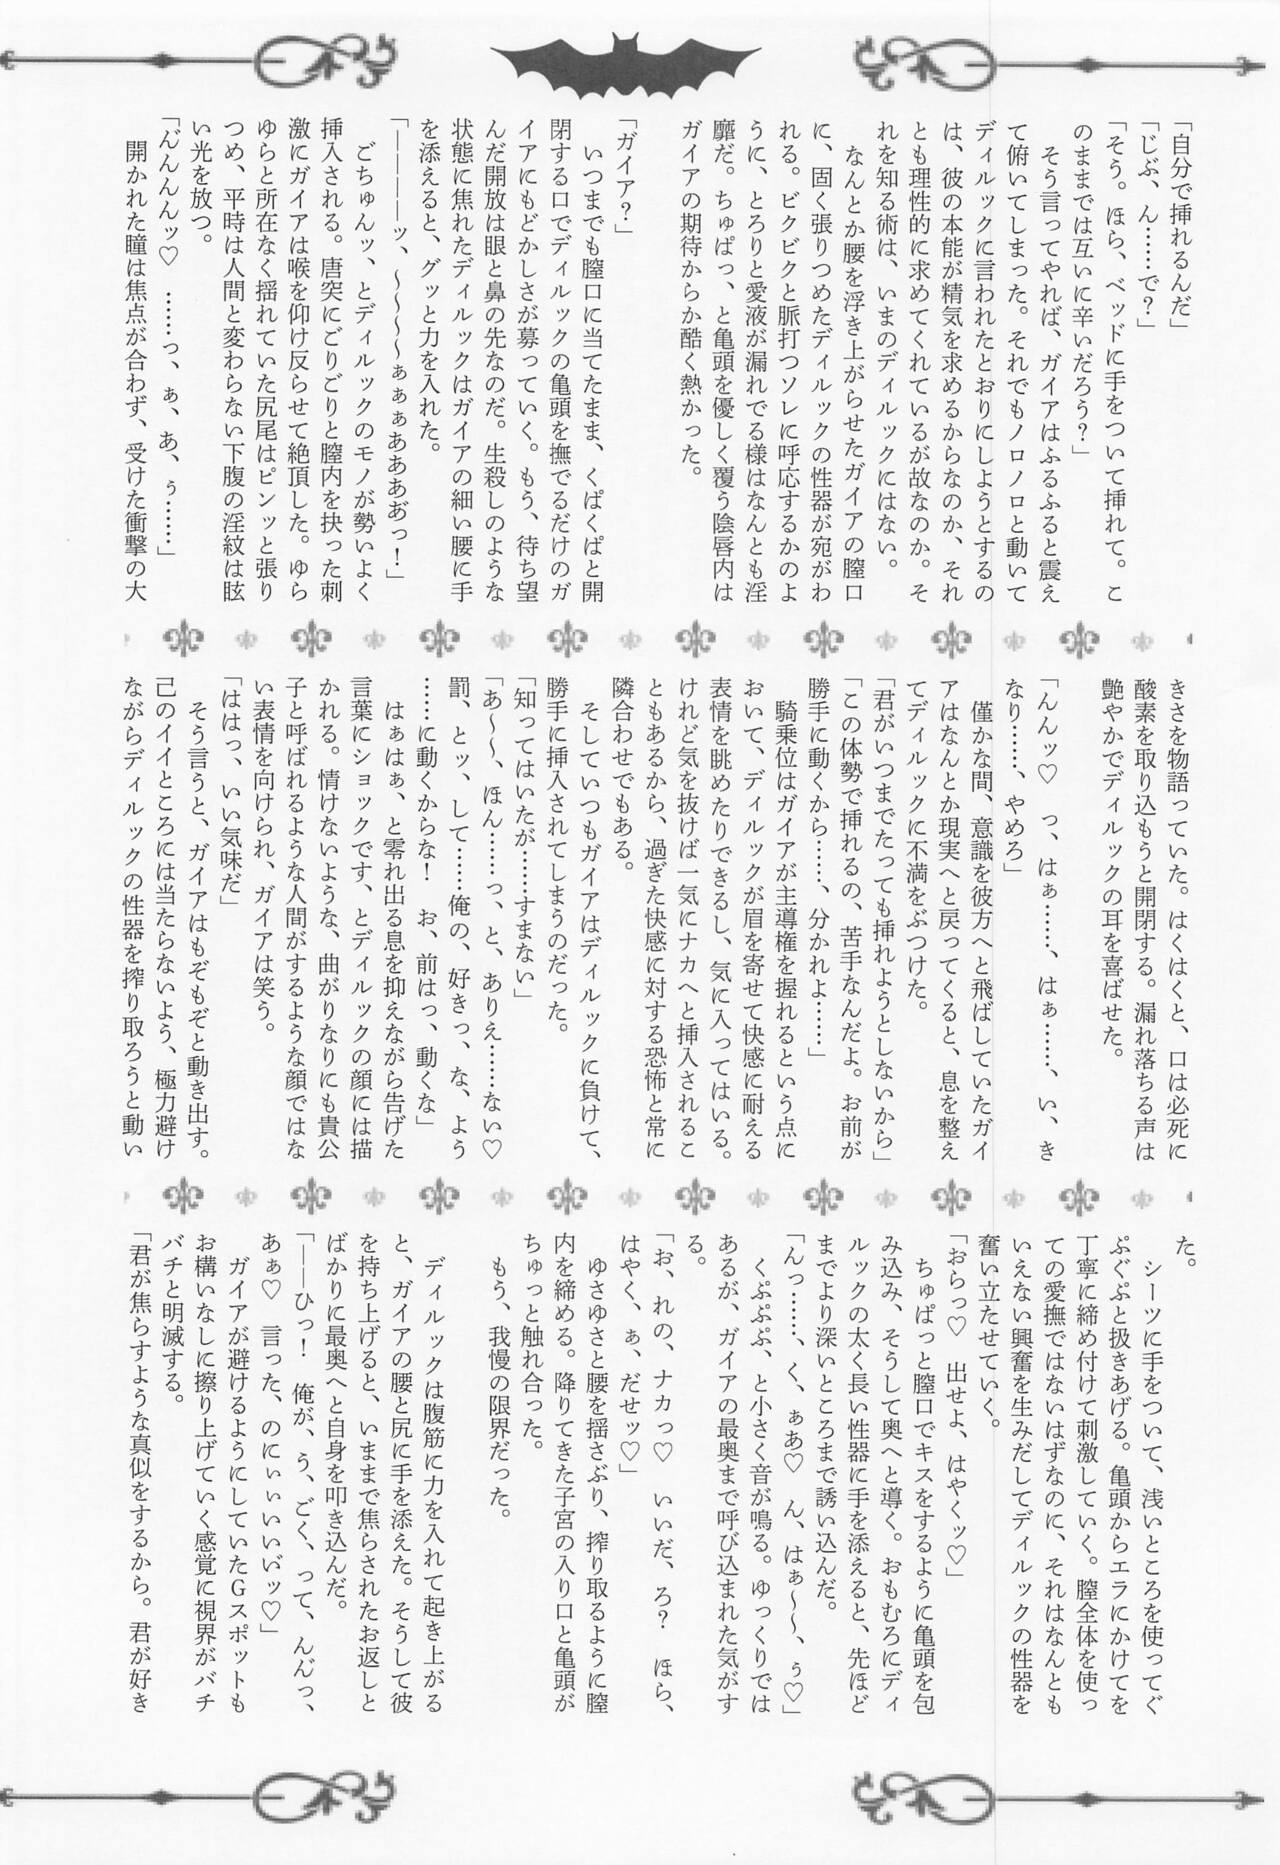 「自分で挿れるんだ」
「じぶ、ん……で？」
「そう。ほら、ベッドに手をついて挿れて。こ
のままでは互いに辛いだろう？」
そう言ってやれば、ガイアはふるふると震え
て俯いてしまった。それでもノロノロと動いて
ディルックに言われたとおりにしようとするの
は、彼の本能が精気を求めるからなのか、それ
とも理性的に求めてくれているが故なのか。そ
れを知る術は、いまのディルックにはない。
なんとか腰を浮き上がらせたガイアの膣口
に、固く張りつめたディルックの性器が宛がわ
れる。ビクビクと脈打つソレに呼応するかのよ
うに、とろりと愛液が漏れでる様はなんとも淫
靡だ。ちゅぱっ、と亀頭を優しく覆う陰唇内は
ガイアの期待からか酷く熱かった。
「ガイア？」
いつまでも膣口に当てたまま、くぱくぱと開
閉する口でディルックの亀頭を撫でるだけのガ
イアにもどかしさが募っていく。もう、待ち望
んだ開放は眼と鼻の先なのだ。生殺しのような
状態に焦れたディルックはガイアの細い腰に手
を添えると、グッと力を入れた。
「――――ッ、～～～～ぁぁぁあああぢっ！」
ごちゅんッ、とディルックのモノが勢いよく
挿入される。唐突にごりごりと膣内を抉った刺
激にガイアは喉を仰け反らせて絶頂した。ゆら
ゆらと所在なく揺れていた尻尾はピンッと張り
つめ、平時は人間と変わらない下腹の淫紋は眩
い光を放つ。
「ん゛んんんッ♡　……っ、ぁ、あ、ぅ……」
開かれた瞳は焦点が合わず、受けた衝撃の大
きさを物語っていた。はくはくと、口は必死に
酸素を取り込もうと開閉する。漏れ落ちる声は
艶やかでディルックの耳を喜ばせた。
「んんッ♡　っ、はぁ……、はぁ……、い、き
なり……、やめろ」
僅かな間、意識を彼方へと飛ばしていたガイ
アはなんとか現実へと戻ってくると、息を整え
てディルックに不満をぶつけた。
「君がいつまでたっても挿れようとしないから」
「この体勢で挿れるの、苦手なんだよ。お前が
勝手に動くから……、分かれよ……」
騎乗位はガイアが主導権を握れるという点に
おいて、ディルックが眉を寄せて快感に耐える
表情を眺めたりできるし、気に入ってはいる。
けれど気を抜けば一気にナカへと挿入されるこ
ともあるから、過ぎた快感に対する恐怖と常に
隣合わせでもある。
そしていつもガイアはディルックに負けて、
勝手に挿入されてしまうのだった。
「知ってはいたが……すまない」
「あ～～、ほん……っ、と、ありえ……ない♡
罰、とッ、して……俺の、好きっ、な、よう
……に動くからな！　お、前はっ、動くな」
はぁはぁ、と零れ出る息を抑えながら告げた
言葉にショックです、とディルックの顔には描
かれる。情けないような、曲がりなりにも貴公
子と呼ばれるような人間がするような顔ではな
い表情を向けられ、ガイアは笑う。
「ははっ、いい気味だ」
そう言うと、ガイアはもぞもぞと動き出す。
己のイイところには当たらないよう、極力避け
ながらディルックの性器を搾り取ろうと動い
た。
シーツに手をついて、浅いところを使ってぐ
ぷぐぷと扱きあげる。亀頭からエラにかけてを
丁寧に締め付けて刺激していく。膣全体を使っ
ての愛撫ではないはずなのに、それはなんとも
いえない興奮を生みだしてディルックの性器を
奮い立たせていく。
「おらっ♡　出せよ、はやくッ♡」
ちゅぱっと膣口でキスをするように亀頭を包
み込み、そうして奥へと導く。おもむろにディ
ルックの太く長い性器に手を添えると、先ほど
までより深いところまで誘い込んだ。
「んっ……、く、ぁあ♡　ん、はぁ～～、ぅ♡」
くぷぷぷ、と小さく音が鳴る。ゆっくりでは
あるが、ガイアの最奥まで呼び込まれた気がす
る。
「お、れの、ナカっ♡　いいだ、ろ？　ほら、
はやく、ぁ、だせッ♡」
ゆさゆさと腰を揺さぶり、搾り取るように膣
内を締める。降りてきた子宮の入り口と亀頭が
ちゅっと触れ合った。
もう、我慢の限界だった。
ディルックは腹筋に力を入れて起き上がる
と、ガイアの腰と尻に手を添えた。そうして彼
を持ち上げると、いままで焦らされたお返しと
ばかりに最奥へと自身を叩き込んだ。
「――ひっ！　俺が、う、ごく、って、んん゛っ、
あぁ♡　言った、のにぃぃいいッ♡」
ガイアが避けるようにしていたGスポットも
お構いなしに擦り上げていく感覚に視界がバチ
バチと明滅する。
「君が焦らすような真似をするから。君が好き